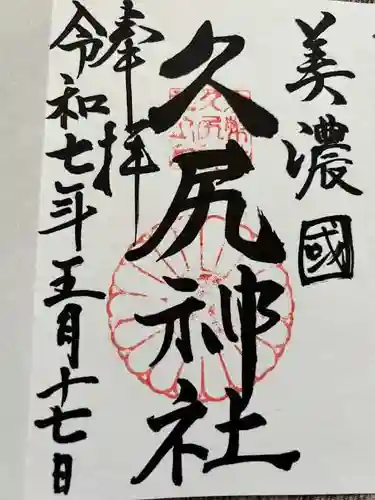 美濃國
久尻神社
奉拝
令和七年五月十七日